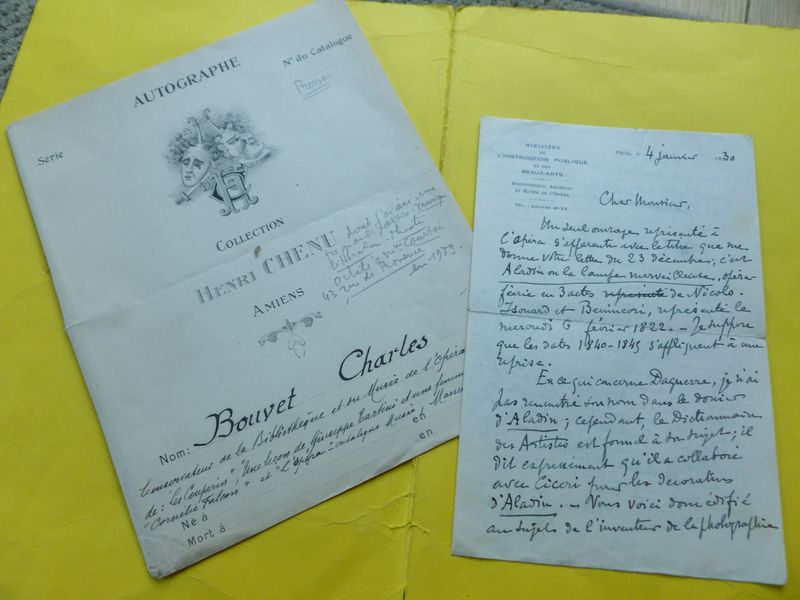 AUTOGRAPHE
Série
N° du Catalogue
Presse
COLLECTION
HENRI CHENU
AMIENS
43 rue de Provence
en 1929.
Nom: Bouvet Charles
Conservateur de la Bibliothèque et du Musée de l'Opéra
de: "Les Couperin", "Une leçon de Giuseppe Tartini et une femme
"Cornélie Falcon" et "L'Opéra" - catalogue Musée
Né à
et
Mort à
en
MINISTÈRE
DE
L'INSTRUCTION PUBLIQUE
ET DES
BEAUX-ARTS
BIBLIOTHÈQUE, ARCHIVES
ET MUSÉE DE L'OPÉRA
TÉL.: LOUVRE
Paris, le 4 janvier 1930
Cher Monsieur,
Un seul ouvrage représenté à
l'Opéra s'apparente avec le titre que me
donne votre lettre du 23 décembre; c'est
Aladin ou la lampe merveilleuse, opéra
féérie en 3 actes représenté de Nicolo-
Isouard et Benincori, représenté le
mercredi 6 février 1822. - Je suppose
que les dates 1840-1845 s'appliquent à une
reprise.
En ce qui concerne Daguerre, je n'ai
pas rencontré son nom dans le dossier
d'Aladin; cependant, le Dictionnaire
des Artistes est formel à son sujet; il
dit expressément qu'il a collaboré
avec Ciceri pour les décorations
d'Aladin. - Vous voici donc édifié
au sujet de l'inventeur de la photographie